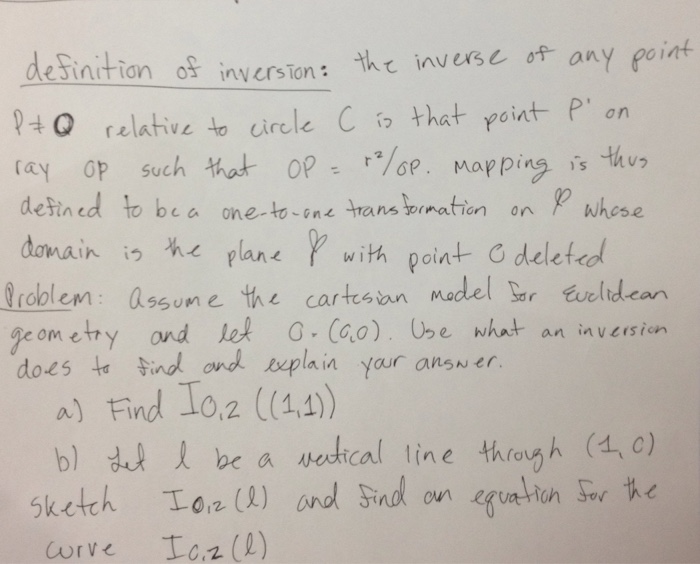 definition of inversion: the inverse of any point
P ≠ O relative to circle C is that point P' on
ray OP such that OP = r²/OP. Mapping is thus
defined to be a one-to-one transformation on P whose
domain is the plane P with point O deleted
Problem: Assume the cartesian model for Euclidean
geometry and let O = (0,0). Use what an inversion
does to find and explain your answer.
a) Find I0,2 ((1,1))
b) Let l be a vertical line through (1,0)
sketch I0,2 (l) and find an equation for the
curve I0,2 (l)